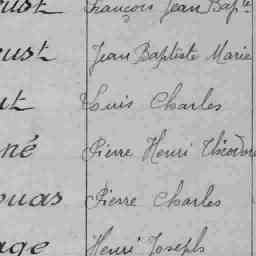 ust François Jean Bap.te
ust Jean Baptiste Marie
ut Louis Charles
né Pierre Henri Théodore
ouas Pierre Charles
age Henri Joseph